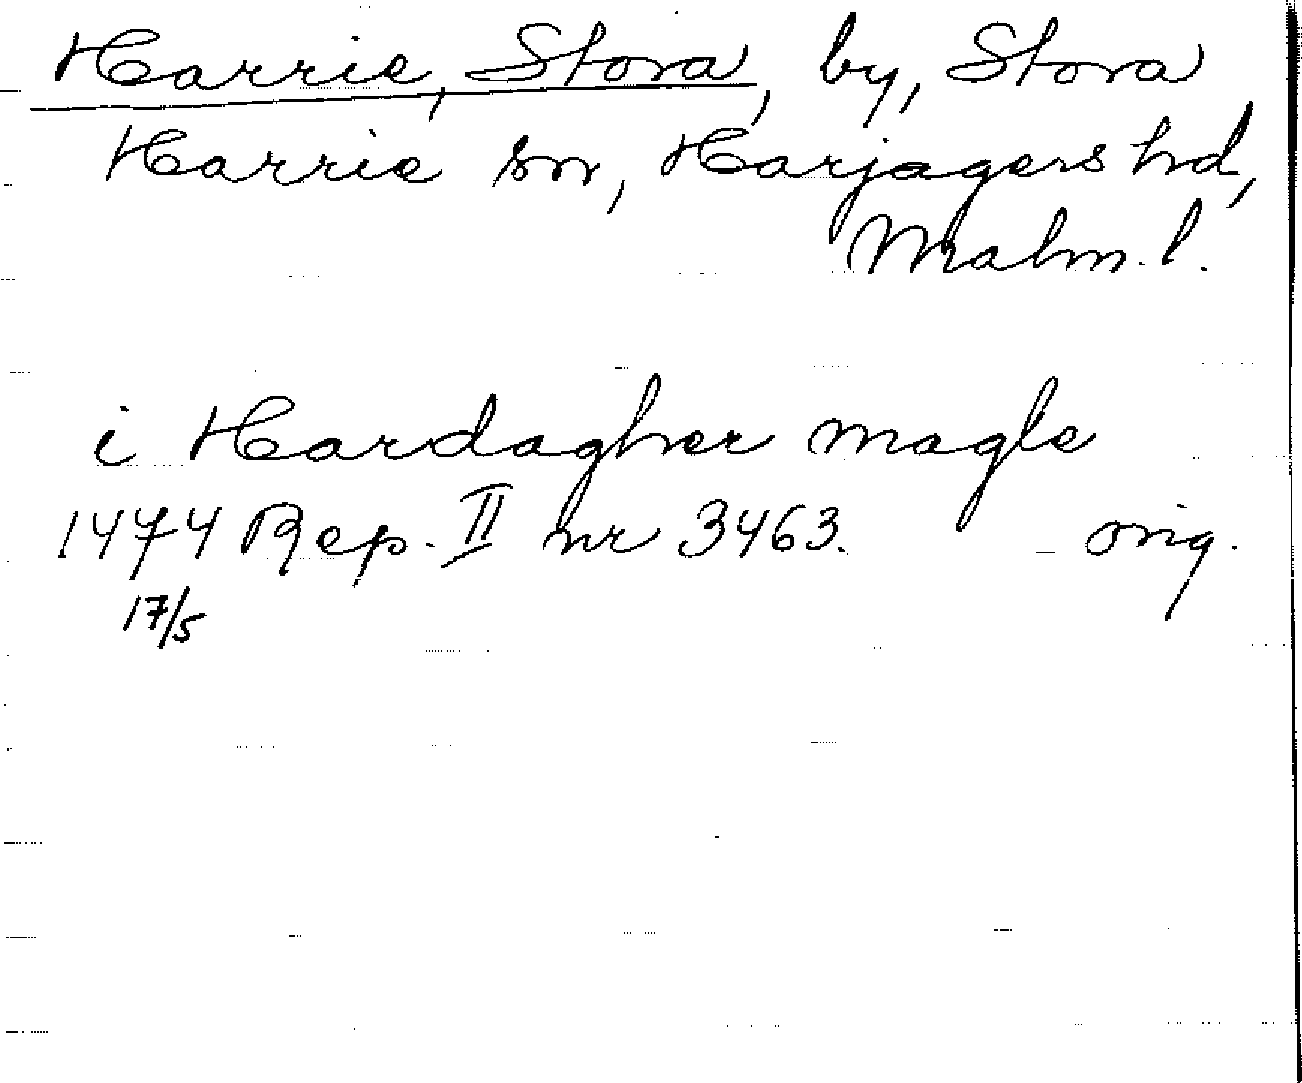 Harrie, Stora, by, Stora
Harrie sn, Harjagers hd,
Malm. l.
i Hardagher magle
1474 Rep. II nr 3463. orig.
17/5